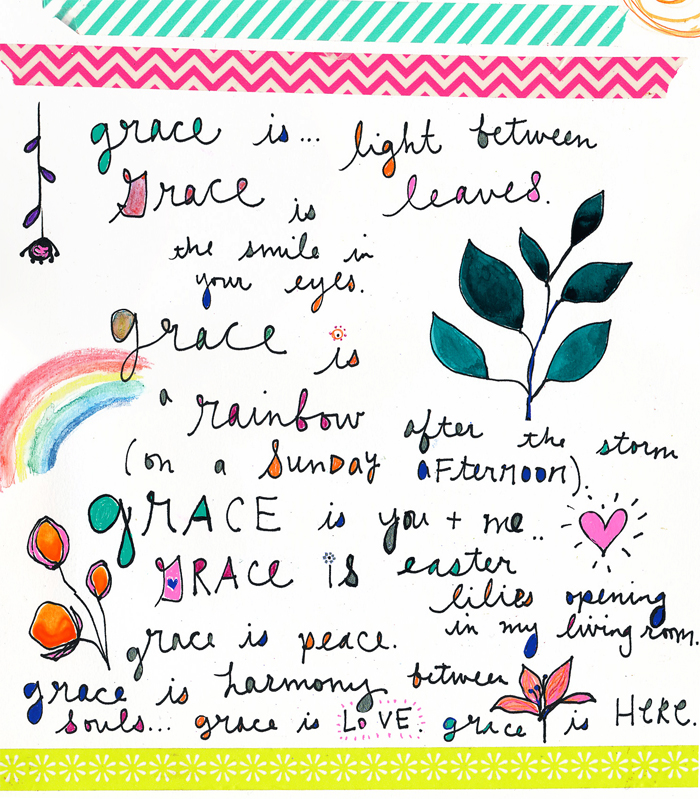 grace is... light between
Grace is leaves.
the smile in
your eyes.
grace is
a rainbow after the storm
(on a SunDAy aFternoon).
grACE is you + me..
GRACe iS easter
lilies opening
in my living room.
grace is peace.
grace is harmony between
souls... grace is LOVE. grace is HeRe.